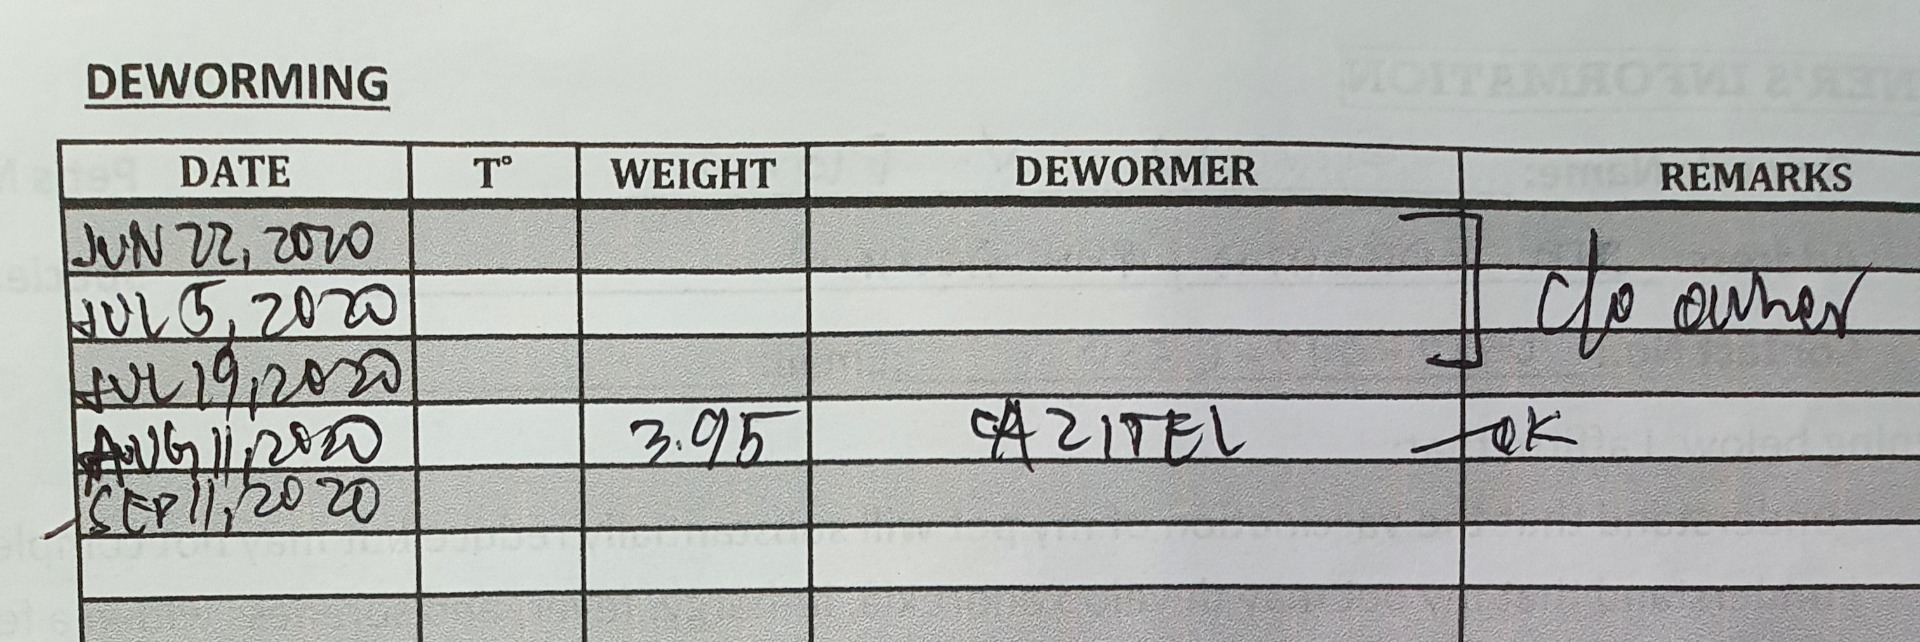 DEWORMING
DATE T° WEIGHT DEWORMER REMARKS
JUN 22, 2020
JUL 5, 2020 c/o owner
JUL 19, 2020
AUG 11, 2020 3.95 CAZITEL OK
SEP 11, 2020